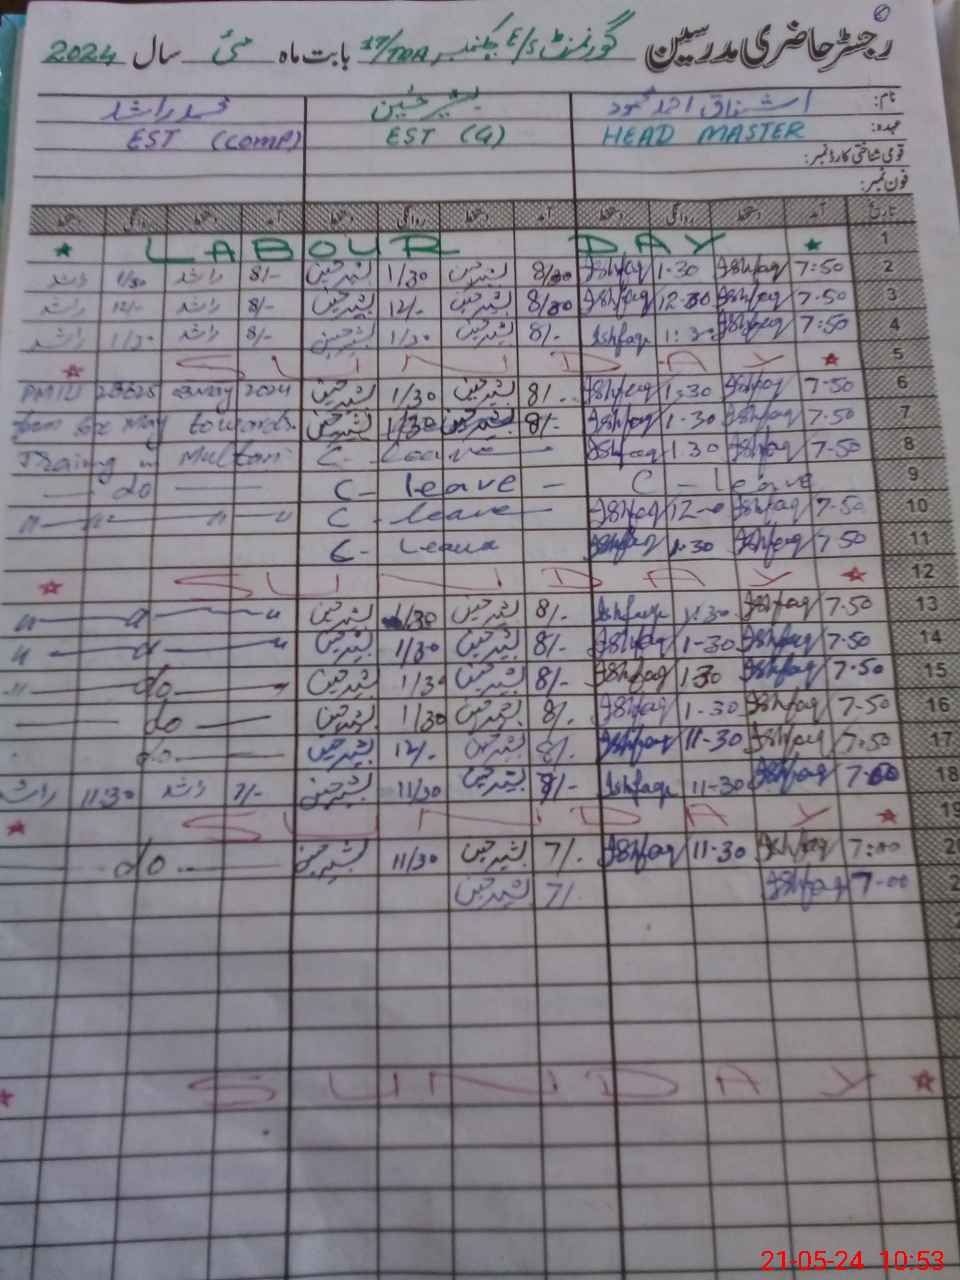 رجسٹر حاضری مدرسین گورنمنٹ E/S چکنمبر 17/TDA بابت ماہ مئی سال 2024
نام: اشفاق احمد محمود بشیر حسین محمد راشد
عہدہ: HEAD MASTER EST (G) EST (COMP)
قومی شناختی کارڈ نمبر:
فون نمبر:
تاریخ آمد دستخط روانگی دستخط آمد دستخط روانگی دستخط آمد دستخط روانگی دستخط
1 ★ LABOUR DAY ★
2 7:50 Ishfaq 1-30 Ishfaq 8/30 بشیر حسین 1/30 بشیر حسین 8/- راشد 1/30 راشد
3 7-50 Ishfaq 12-30 Ishfaq 8/30 بشیر حسین 12/- بشیر حسین 8/- راشد 12/- راشد
4 7:50 Ishfaq 1:30 Ishfaq 8/- بشیر حسین 1/30 بشیر حسین 8/- راشد 1/30 راشد
5 ★ SUNDAY ★
6 7-50 Ishfaq 1:30 Ishfaq 8/- بشیر حسین 1/30 بشیر حسین PMIU May 2024
7 7-50 Ishfaq 1-30 Ishfaq 8/- بشیر حسین 1/30 بشیر حسین from May towards
8 7-50 Ishfaq 1-30 Ishfaq C- Leave - Training in Multan
9 C - leave C- leave - — do —
10 7-50 Ishfaq 12-0 Ishfaq C - leave — " — " — " "
11 7-50 Ishfaq 1-30 Ishfaq C- Leave
12 ★ SUNDAY ★
13 7-50 Ishfaq 1:30 Ishfaq 8/- بشیر حسین 1/30 بشیر حسین " — " — "
14 7-50 Ishfaq 1-30 Ishfaq 8/- بشیر حسین 1/30 بشیر حسین " — " — "
15 7-50 Ishfaq 1-30 Ishfaq 8/- بشیر حسین 1/30 بشیر حسین " — do — "
16 7-50 Ishfaq 1-30 Ishfaq 8/- بشیر حسین 1/30 بشیر حسین — do —
17 7-50 Ishfaq 11-30 Ishfaq 8/- بشیر حسین 12/- بشیر حسین do —
18 7-00 Ishfaq 11-30 Ishfaq 8/- بشیر حسین 11/30 بشیر حسین 7/- راشد 11:30 راشد
19 ★ SUNDAY ★
20 7:00 Ishfaq 11-30 Ishfaq 7/- بشیر حسین 11/30 بشیر حسین — do —
2 7-00 Ishfaq 7/- بشیر حسین
★ SUNDAY ★
21-05-24 10:53